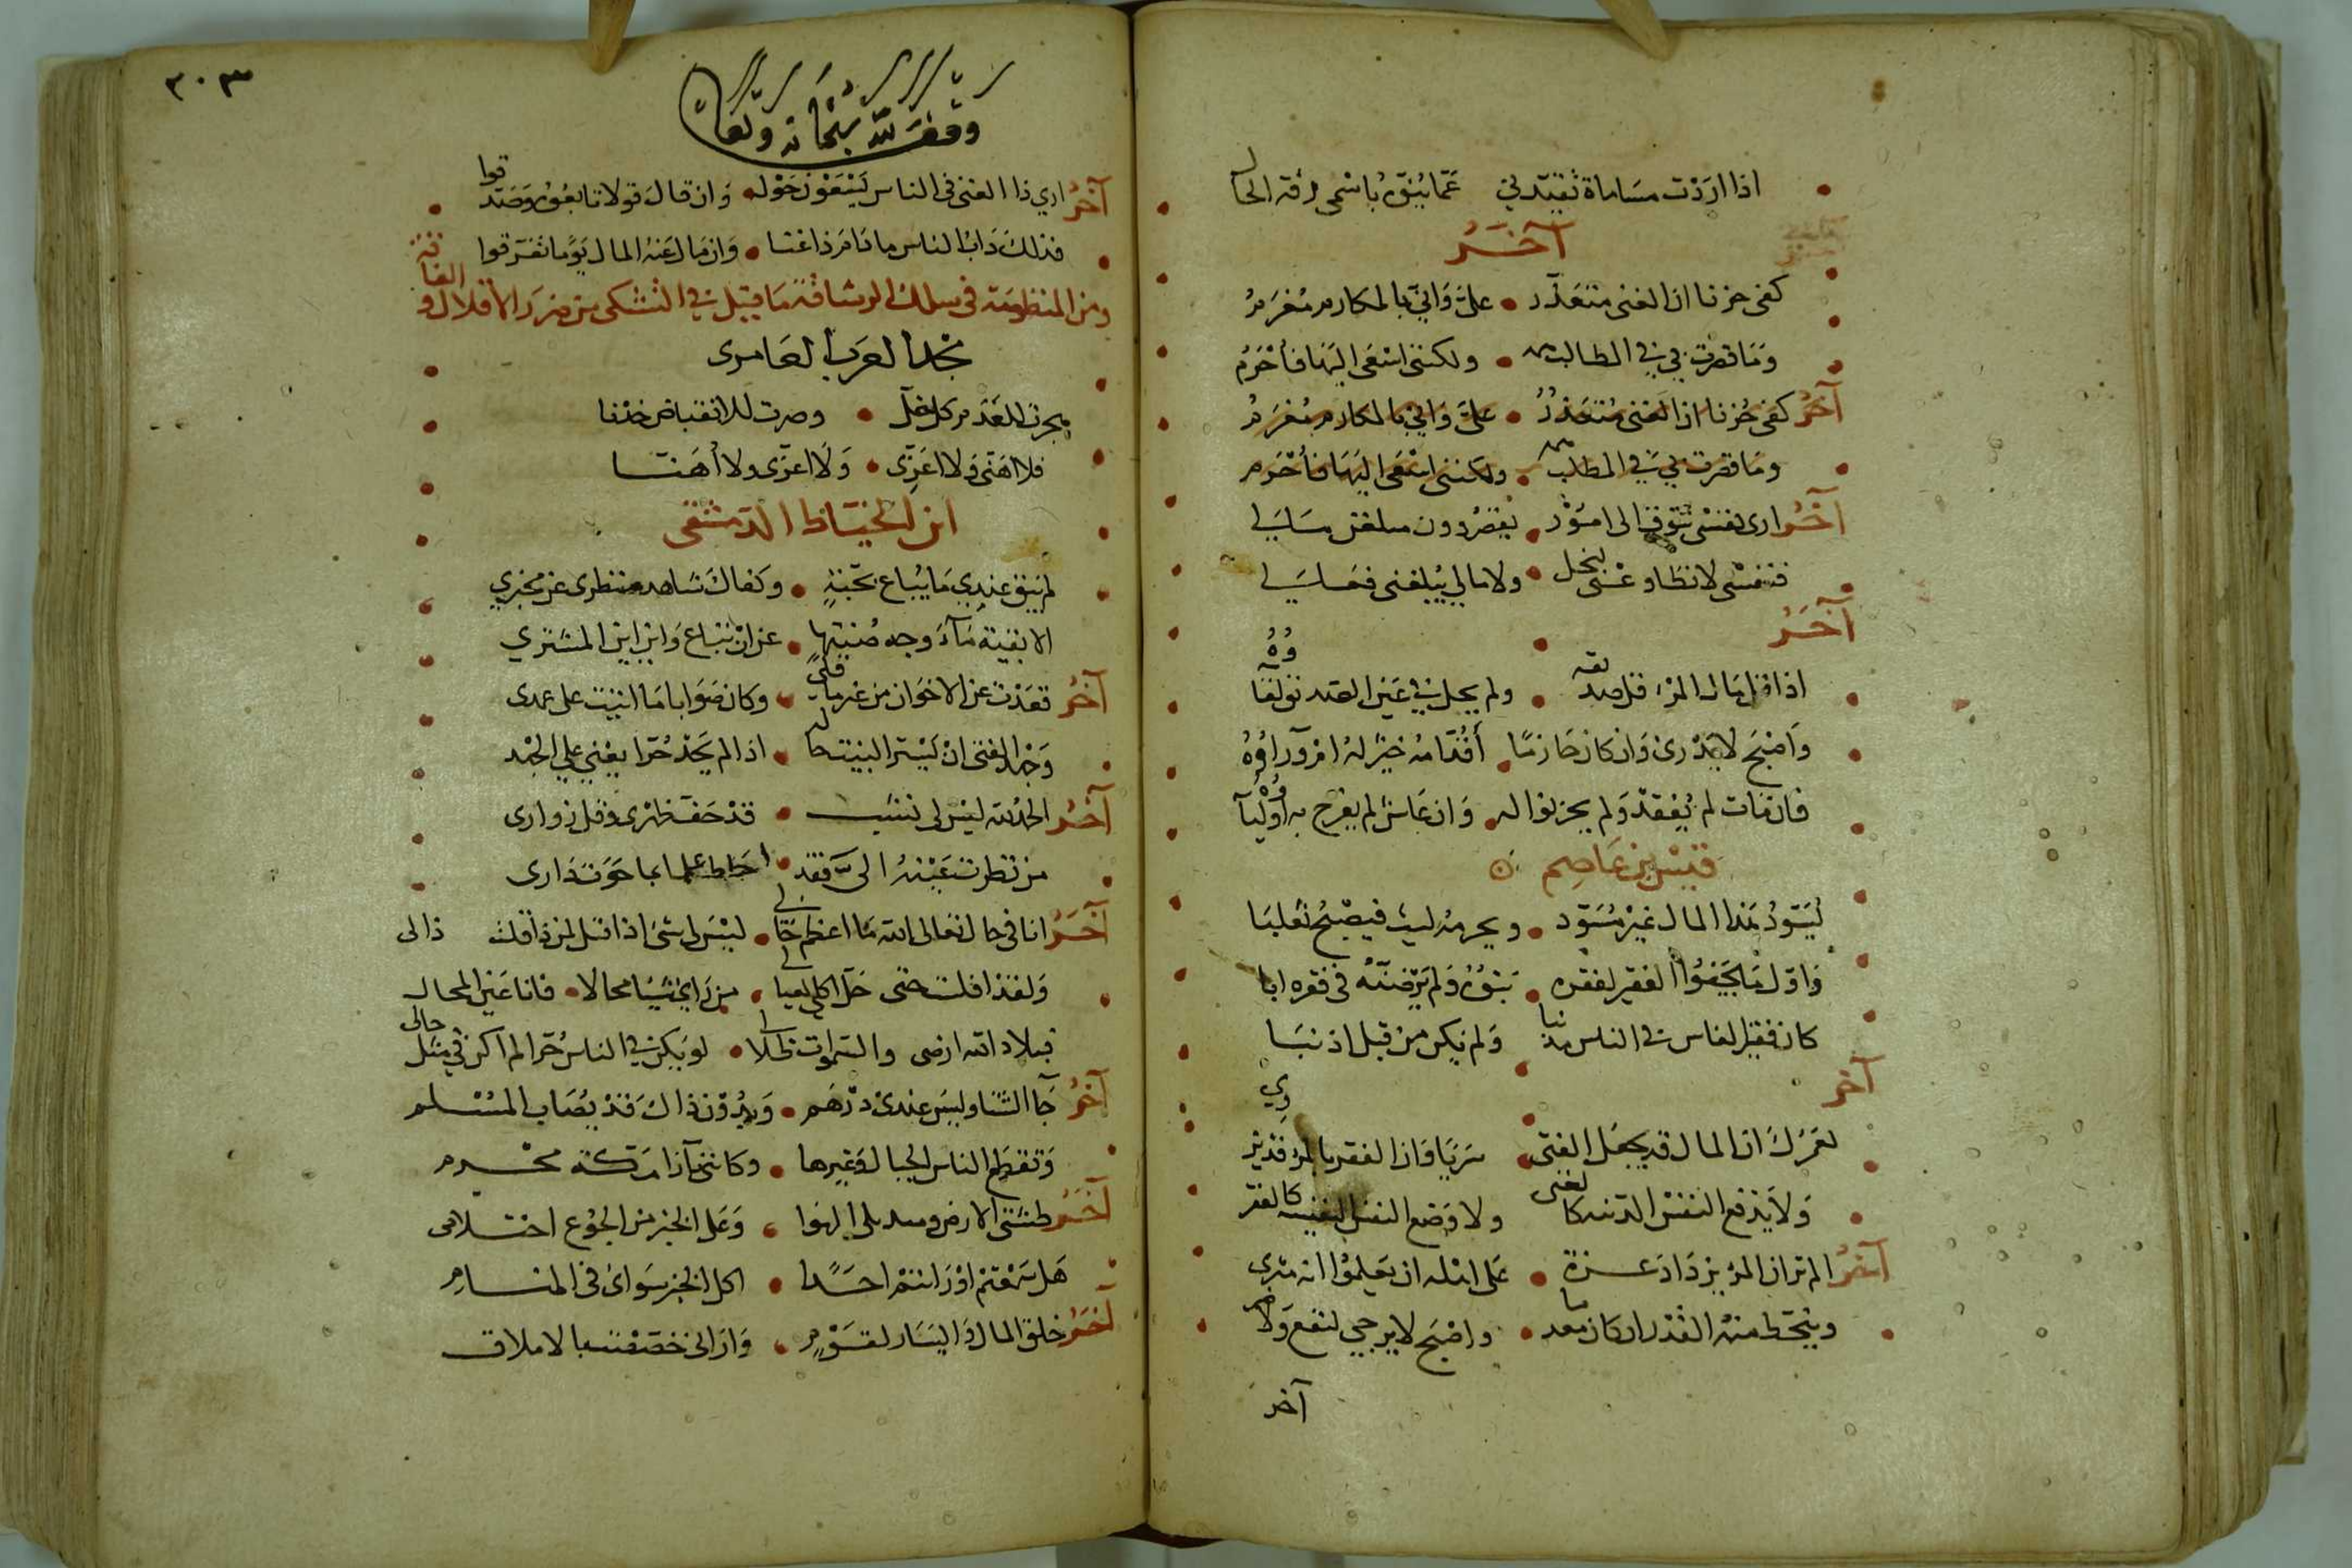 اذا اردت مساماة تقيدني عما ينوه باسمي رقة الحال
آخر
كفى حزنا ان الغنى متعذر علي واني بالمكارم مغرم
وما قصرت بي في المطالب همة ولكنني اسعى اليها فأحرم
آخر كفى حزنا ان الغنى متعذر علي واني بالمكارم مغرم
وما قصرت بي في المطالب همة ولكنني اسعى اليها فأحرم
آخر ارى نفسي تتوق الى امور يقصر دون مبلغهن مالي
فنفسي لا تطاوعني ببخل ولا مالي يبلغني فعالي
آخر
اذا قل مال المرء قل صديقه ولم يحل في عين الصديق لقاؤه
واصبح لا يدري وان كان حازما أقدامه خير له ام وراؤه
فان مات لم يفقد ولم يحزنوا له وان عاش لم يفرح به اولياؤه
قيس بن عاصم
يسود هذا المال غير مسود ويحرمه ليث فيصبح ثعلبا
واول ما يجفو الفقير لفقره بنوه ولم يرضنه في فقره ابا
كان فقير الناس في الناس مذنبا ولم يكن من قبل اذنبا
آخر
لعمرك ان المال قد يجعل الفتى سريا وان الفقر بالمرء قد يزري
ولا يرفع النفس الدنية كالغنى ولا وضع النفس النفيسة كالفقر
آخر الم تر ان المرء يزداد عزة على اهله ان يعلموا انه مثري
وينحط منه القدر ان كان معدما واصبح لا يرجى لنفع ولا ضر
آخر
٣٠٣
وقف لله سبحانه وتعالى
آخر ارى ذا الغنى في الناس يسعون حوله وان قال قولا تابعوه وصدقوا
فذلك داب الناس ما دام ذا غنا وان مال عنه المال يوما تفرقوا
ومن المنظومة في سلك الرشاقة ما قيل في التشكي من ضرر الاقلال والفاقة
مجد العرب العامري
هجرت للعدم كل خل وصرت للانقباض خدنا
فلا اهنى ولا اعزى ولا اعزى ولا أهنا
ابن الخياط الدمشقي
لم يبق عندي ما يباع بحبة وكفاك شاهد منظري عن مخبري
الا بقية ماء وجه صنتها عن ان تباع واين اين المشتري
آخر قعدت عن الاخوان من غير ما قلى وكان صوابا ما اتيت على عمدى
وجهد الفتى ان يستر البيت حاله اذا لم يجد حرا يعني على الجهد
آخر الحمد لله ليس لي نشب قد خف ظهري وقل زواري
من نظرت عينه الي فقد احاط علما بما حوت داري
آخر انا في حال تعالى الله ما اعظم حالي ليس لي شئ اذا قيل لمن ذا قلت ذا لي
ولقد افلست حتى حل اكلي لعيالي من راى شيئا محالا فانا عين المحال
فبلاد الله ارضي والسموات ظلالي لو يكن في الناس حر لم اكن في مثل حالي
آخر جا الشتا وليس عندي درهم وبدون ذاك قد يصاب المسلم
وتقطع الناس الجبال وغيرها وكانني بازا مكة محرم
آخر طنفستي الارض ومنديلي الهوا وعلى الخبز من الجوع احتلامي
هل سمعتم او رايتم احدا اكل الخبز سواى في المنام
آخر خلق المال واليسار لقوم واراني خصصت بالاملاق